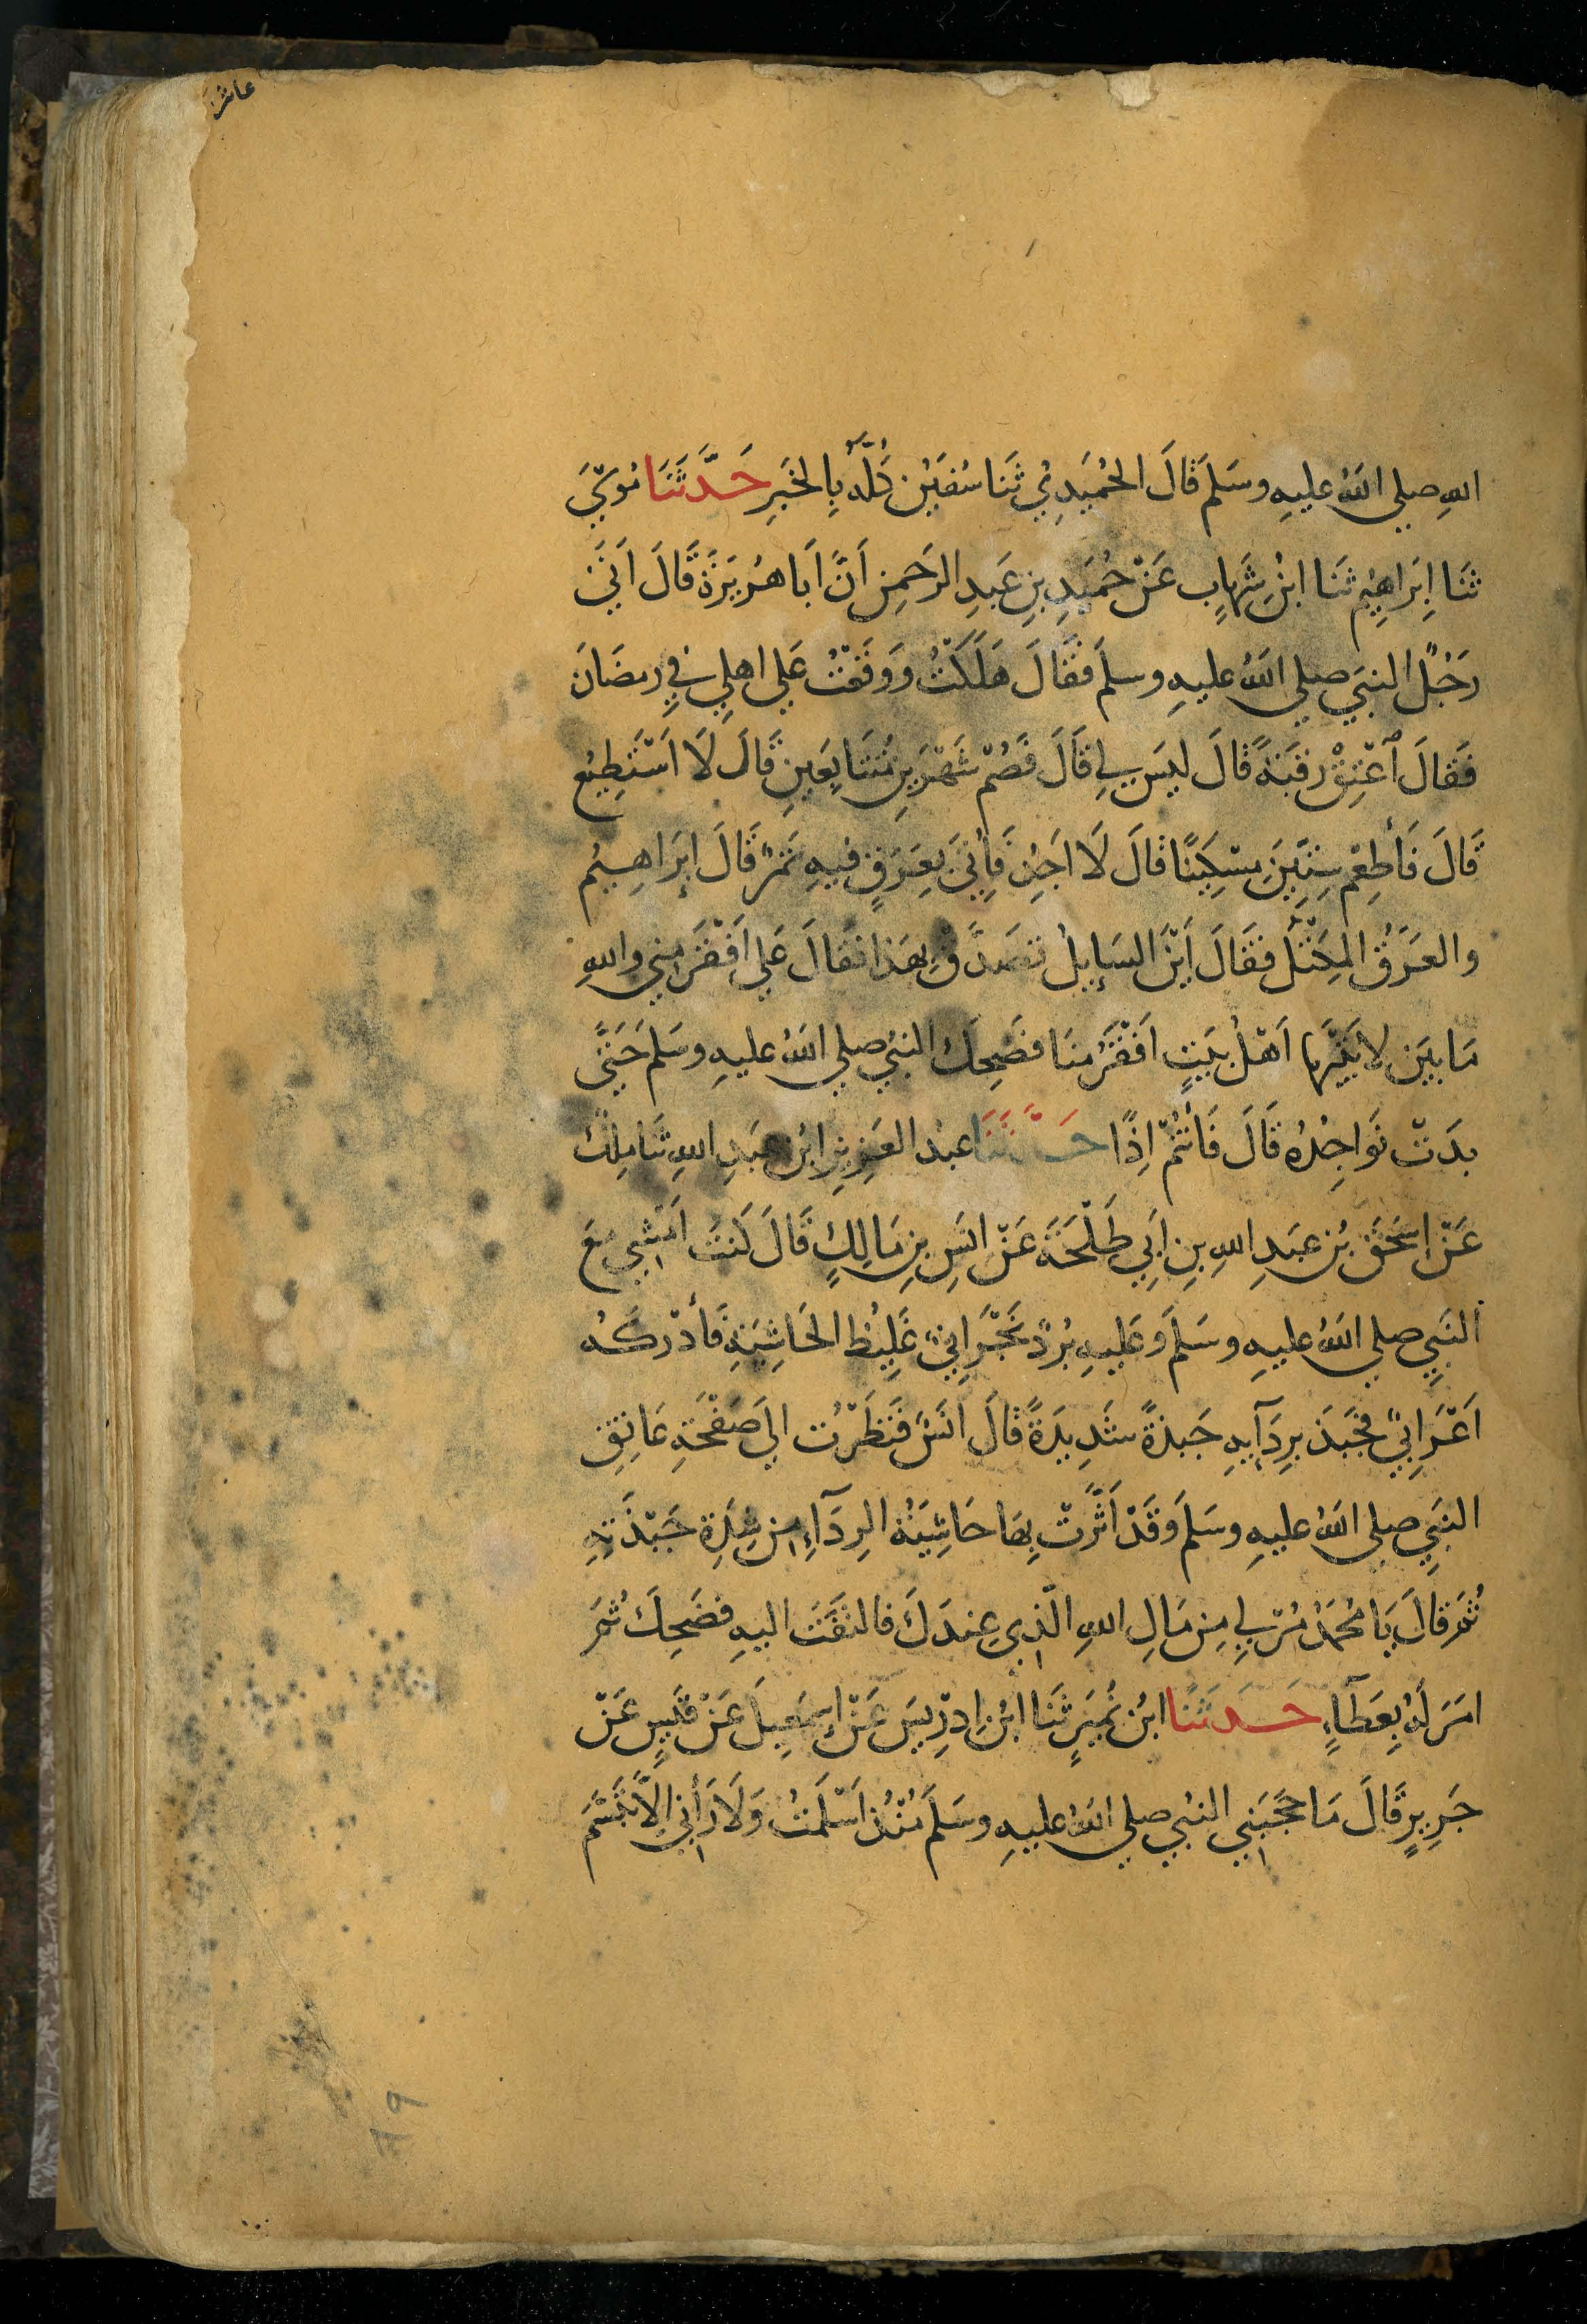 عاشر
اللهِ صلي اللهُ عليهِ وسَلمَ قَالَ الحُمَيدِيُ ثَنَا سُفيَن كُلَّهُ بِالخَبَرِ حَدَّثَنَا مُوسَيَ
ثَنَا اِبرَاهِيم ثَنَا ابنُ شِهَابٍ عَنْ حُمَيدِ بنِ عَبدِ الرَحمنِ اَنَّ اَبَا هُرَيرَةَ قَالَ اَتَيَ
رَجُلٌ النبيَ صلي اللهُ عليهِ وسلمَ فَقَالَ هَلَكتُ وَوَقَعْتُ عَلي اهلِي في رمضَانَ
فَقَالَ اَعْتِقْ رقبَةً قَالَ ليسَ لِي قَالَ فَصُمْ شَهْرَينِ مُتَتَابِعَينِ قَالَ لَا اَسْتَطِيعُ
قَالَ فَأَطعِمْ سِتِّينَ مِسْكِينًا قَالَ لَا اَجِدُ فَأُتيَ بِعَرَقٍ فيهِ تَمرٌ قَالَ إبرَاهِيمُ
والعَرَقُ المِكْتَلُ فَقَالَ اَيْنَ السَايِلُ تَصَدَّقْ بِهَذا فقَالَ عَلي اَفْقَرَ مِني واللهِ
مَا بينَ لَابَتَيهَا اَهْلُ بَيتٍ اَفْقَرُ مِنَا فضَحِكَ النبيُ صلي اللهُ عليهِ وسَلمَ حَتيَ
بدَتْ نَوَاجِذُهُ قَالَ فَأَنتُمْ اِذًا حَدَّثَنَا عبدُ العَزِيزِ ابنُ عبَدِ اللهِ ثَنَا مَلِكٌ
عَنْ اِسحَقَ بنِ عبَدِ اللهِ بنِ اَبِي طَلْحَةَ عَنْ انَسِ بنِ مَالِكٍ قَالَ كُنتُ اَمْشِي معَ
النَبِيِ صلي اللهُ عليهِ وسَلمَ وَعَليهِ بُردٌ نَجْرَانِيٌ غَلِيظ الحَاشِيَةِ فَأَدْرَكَهُ
اَعْرَابِيٌ فجَبَذَ بِرِدَآيِهِ جَبذَةً شَدِيدَةً قَالَ انَسٌ فَنَظَرْتُ الَي صَفْحَةِ عَاتِقِ
النبَيِ صلي اللهُ عليهِ وسَلمَ وَقَدْ اَثَّرَتْ بِهَا حَاشِيَةُ الرِدَآءِ مِن شِدَةِ جَبْذَتِهِ
ثُمَ قَالَ يَا مُحَمَدُ مُرْ لِي مِن مَالِ اللهِ الَّذِي عِندَكَ فالتفَتَ اليهِ فضَحِكَ ثُمَ
امَرَ لَهُ بِعَطَآءٍ حَدَثَنَا ابنُ نُمَيرٍ ثَنَا ابنُ اِدرِيسَ عَنْ إسمَعِيلَ عَنْ قَيسٍ عَنْ
جَرِيرٍ قَالَ مَا حَجَبَنِي النبيُ صلي اللهُ عليهِ وسَلمَ مُنْذُ اَسْلَمتُ وَلَا رَأَنِي إلَّا تَبَسَّمَ
٦٩